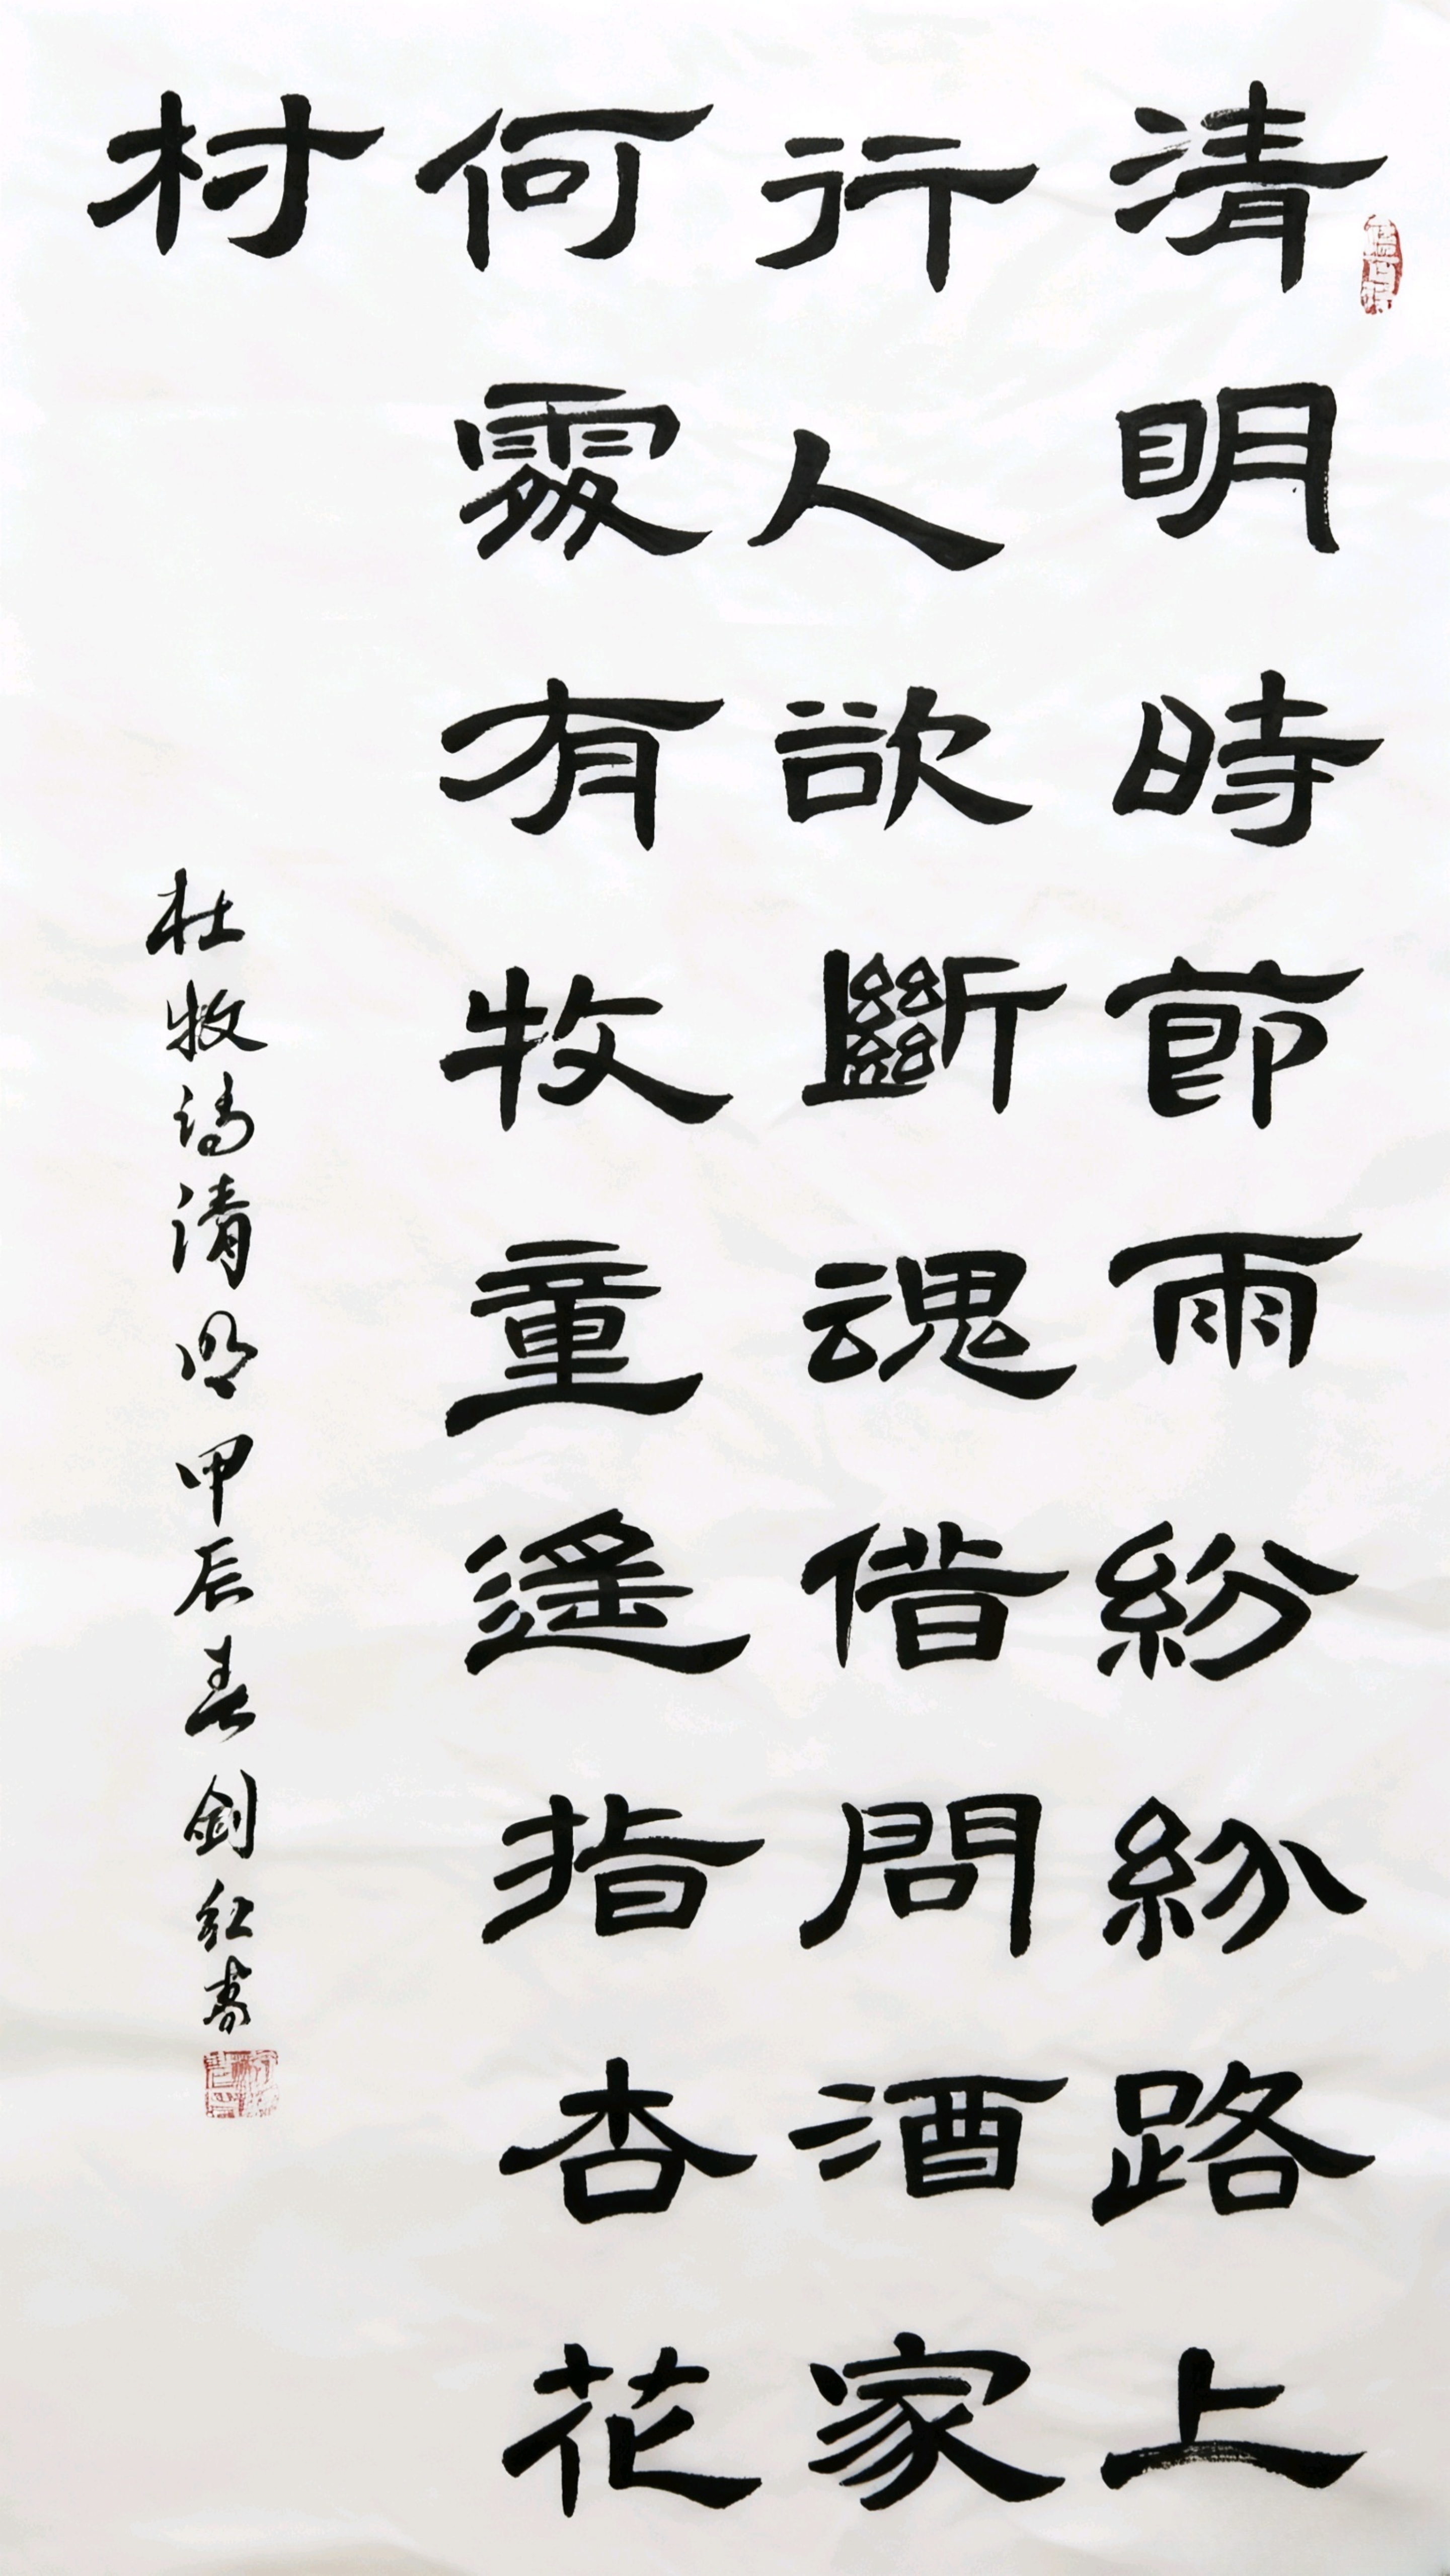 清明時節雨紛紛路上
行人欲斷魂借問酒家
何處有牧童遙指杏花
村
杜牧詩清明甲辰春劍紅書